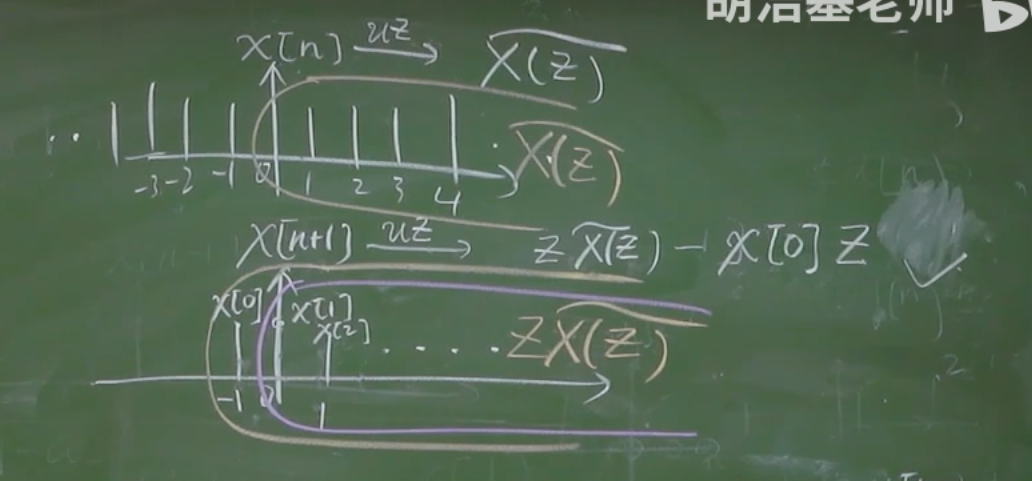 明治基老师
x[n] uZ→ X(Z)
-3 -2 -1 0 1 2 3 4 X(Z)
x[n+1] uZ→ zX(z) - x[0] Z
x[0] x[1] x[2] ..... ZX(Z)
-1 0 1